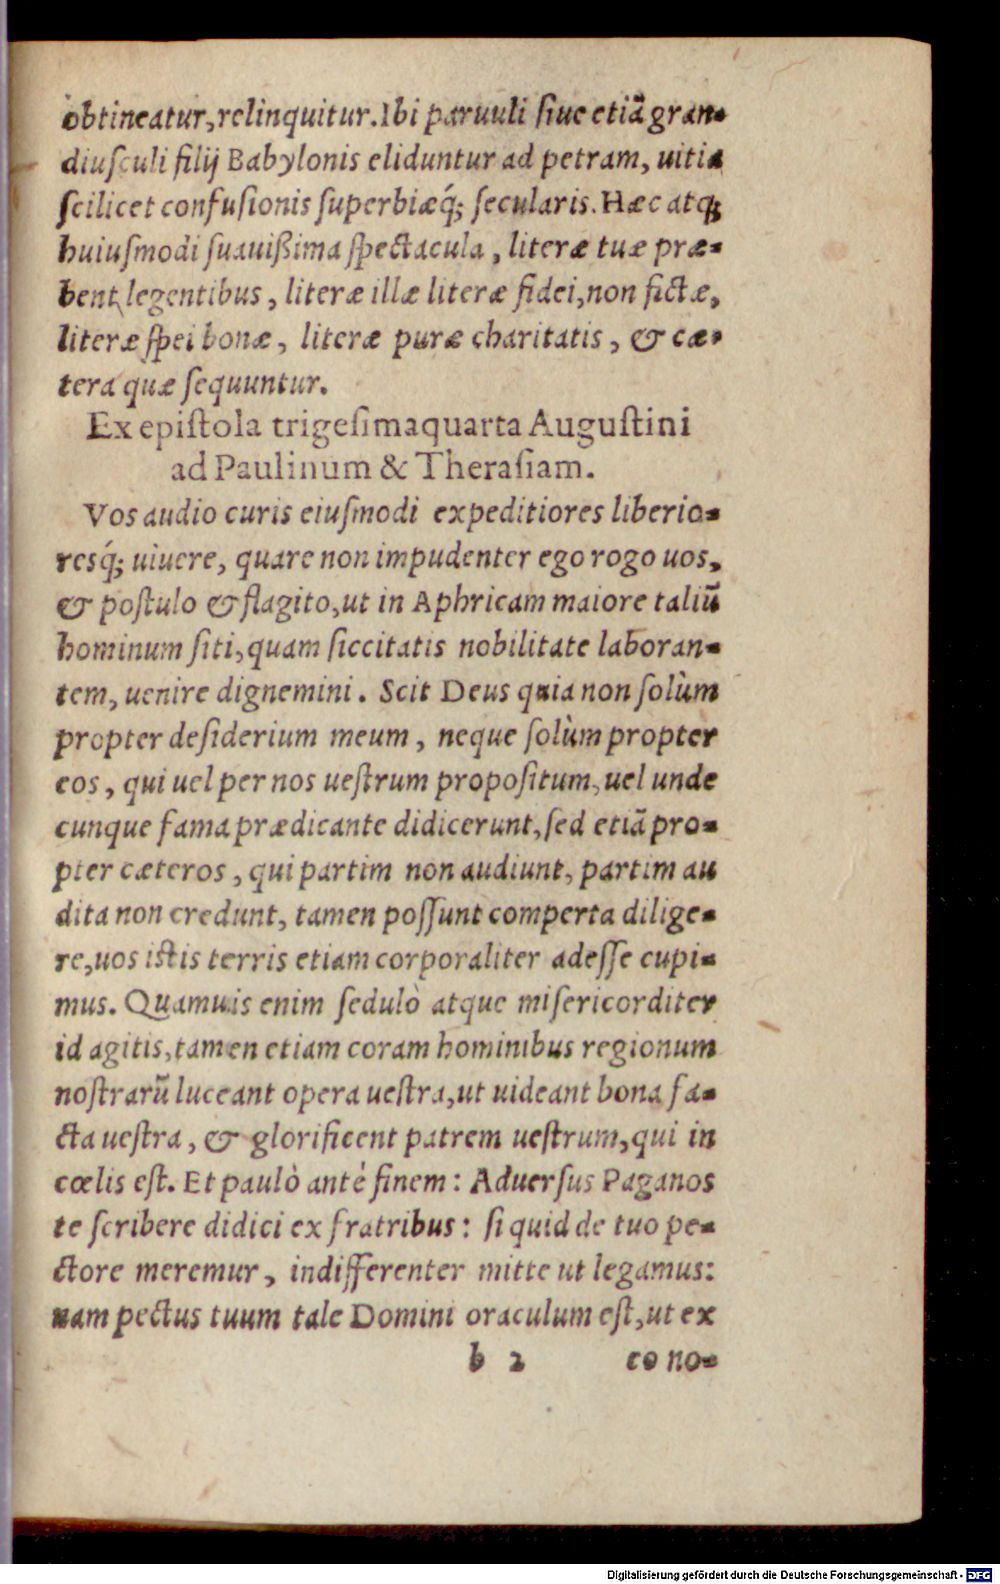 obtineatur, relinquitur. Ibi paruuli ſiue etiã gran-
diuſculi filij Babylonis eliduntur ad petram, uitia
ſcilicet confuſionis ſuperbiæq́; ſecularis. Hæc atq;
huiuſmodi ſuauißima ſpectacula, literæ tuæ præ-
bent legentibus, literæ illæ literæ fidei, non fictæ,
literæ ſpei bonæ, literæ puræ charitatis, & cæ-
tera quæ ſequuntur.
Ex epiſtola trigeſimaquarta Auguſtini
ad Paulinum & Theraſiam.
Vos audio curis eiuſmodi expeditiores liberio-
resq́; uiuere, quare non impudenter ego rogo uos,
& poſtulo & flagito, ut in Aphricam maiore taliũ
hominum ſiti, quam ſiccitatis nobilitate laboran-
tem, uenire dignemini. Scit Deus quia non ſolùm
propter deſiderium meum, neque ſolùm propter
eos, qui uel per nos ueſtrum propoſitum, uel unde
cunque fama prædicante didicerunt, ſed etiã pro-
pter cæteros, qui partim non audiunt, partim au
dita non credunt, tamen poſſunt comperta dilige-
re, uos iſtis terris etiam corporaliter adeſſe cupi-
mus. Quamuis enim ſedulò atque miſericorditer
id agitis, tamen etiam coram hominibus regionum
noſtrarũ luceant opera ueſtra, ut uideant bona fa-
cta ueſtra, & glorificent patrem ueſtrum, qui in
cœlis eſt. Et paulò antè finem: Aduerſus Paganos
te ſcribere didici ex fratribus: ſi quid de tuo pe-
ctore meremur, indifferenter mitte ut legamus:
nam pectus tuum tale Domini oraculum eſt, ut ex
b 2 eo no-
Digitalisierung gefördert durch die Deutsche Forschungsgemeinschaft - DFG